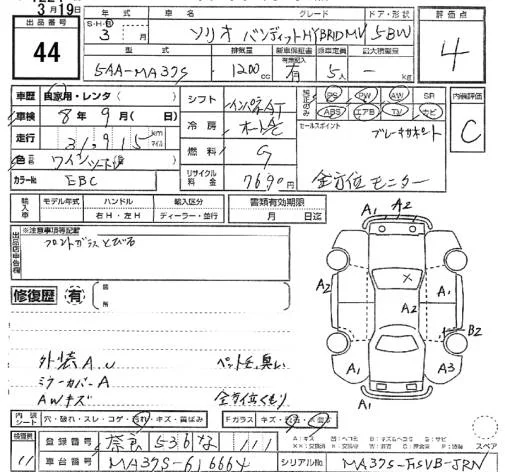 3月19日
出品番号
44
年式 車名 グレード ドア・形状
S・H・R
3 月 ソリオ バンディットHYBRID MV 5BW
評価点
4
型式 排気量 新車保証書 乗車定員 最大積載量
5AA-MA37S 1200 cc 有 5人 - kg
車歴 自家用・レンタ( )
車検 8年 9月( 日)
走行 31,915 km マイル
色 ワインソート
カラーNo. EBC
シフト インパネAT
冷房 オートAC
燃料 G
リサイクル料金 7690円
純正のみ PS PW AW SR
ABS エアB TV ナビ
セールスポイント
ブレーキサポート
全方位モニター
内装評価
C
輸入車 モデル年式 ハンドル 輸入区分
右H・左H ディーラー・並行
書類有効期限
月 日迄
出品店申告欄
※注意事項等記載
フロントガラスとび石
修復歴 有
箇所
外装A.U
ミラーカバーA
AWキズ
ペット毛、臭い
A1 A2
A1
A2 A1
A2
B2
A1 A3
A1
内装 シート 穴・破れ・スレ・コゲ・汚れ・キズ・凹ばみ
Fガラス キズ
検査員
11
登録番号 奈良 536 な 111
車台番号 MA37S-616664
シリアルNo. MA37S-FSVB-JRN
スペア